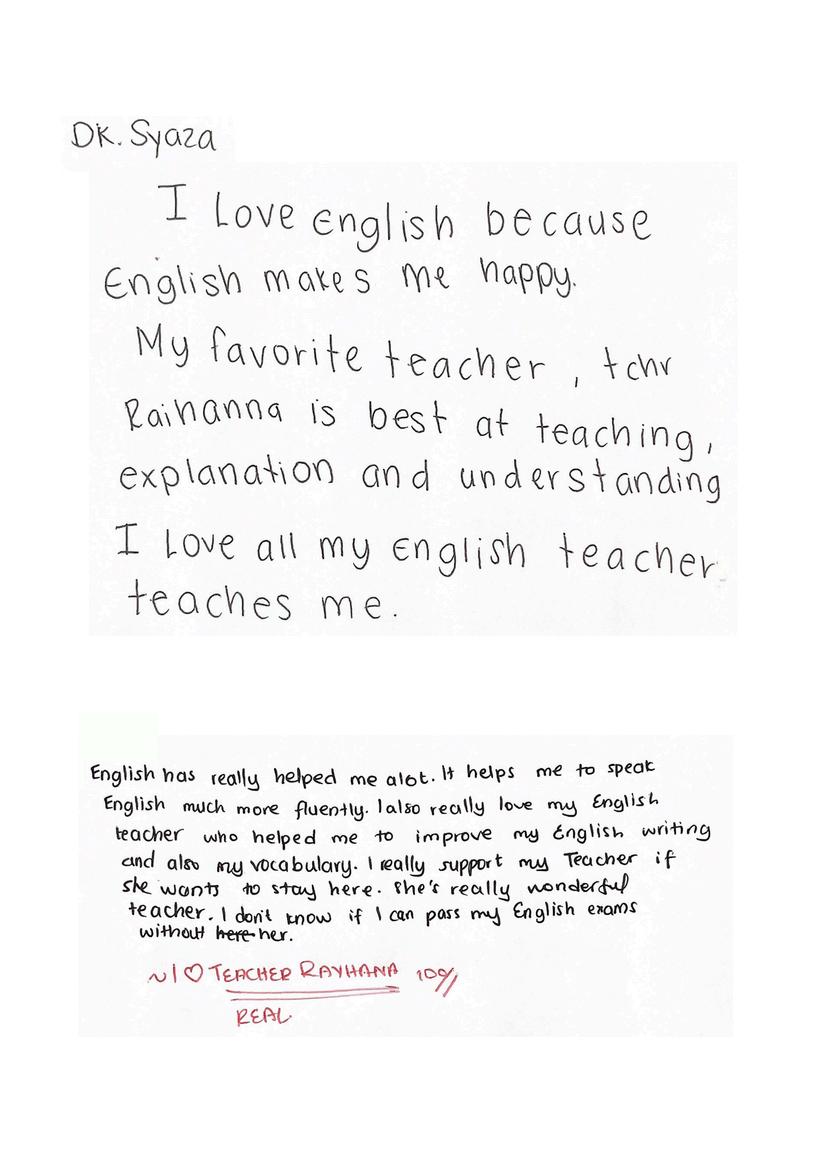 DK. Syaza
I Love English because
English makes me happy.
My favorite teacher, tchr
Raihanna is best at teaching,
explanation and understanding
I Love all my English teacher
teaches me.
English has really helped me alot. It helps me to speak
English much more fluently. I also really love my English
teacher who helped me to improve my English writing
and also my vocabulary. I really support my Teacher if
she wants to stay here. She's really wonderful
teacher. I don't know if I can pass my English exams
without here her.
~ I ♡ TEACHER RAYHANA
REAL